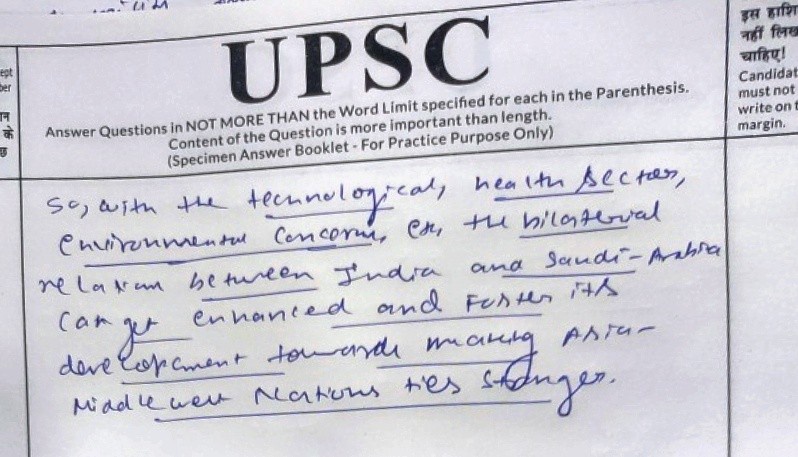 UPSC
इस हाशि
नहीं लिख
चाहिए!
Candidat
must not
write on t
margin.
ept
ber
के
Answer Questions in NOT MORE THAN the Word Limit specified for each in the Parenthesis.
Content of the Question is more important than length.
(Specimen Answer Booklet - For Practice Purpose Only)
So, with the technological, health sectors,
environmental concerns, etc, the bilaterval
relation between India and Saudi-Arabia
can get enhanced and Foster its
development towards making Asia-
Middle west Nations ties stronger.